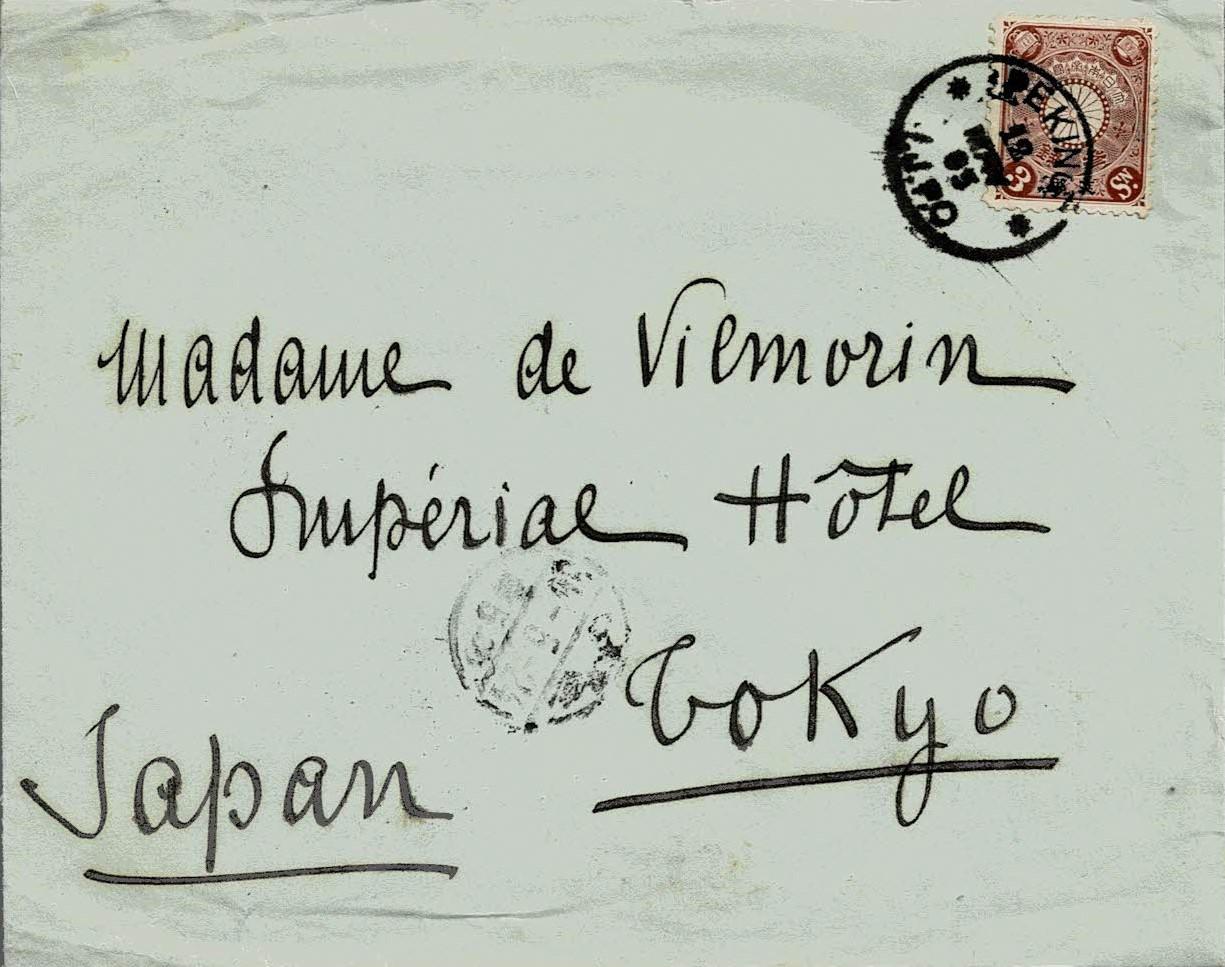 PEKING
12
03
I.J.P.O
3 Sn.
Madame de Vilmorin
Impérial Hôtel
Tokyo
Japan